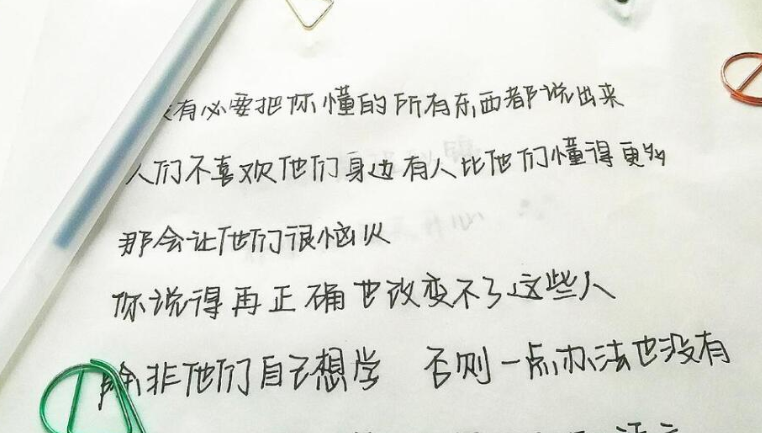 有必要把你懂的所有东西都说出来
人们不喜欢他们身边有人比他们懂得更多
那会让他们很恼火
你说得再正确也改变不了这些人
除非他们自己想学 否则一点办法也没有